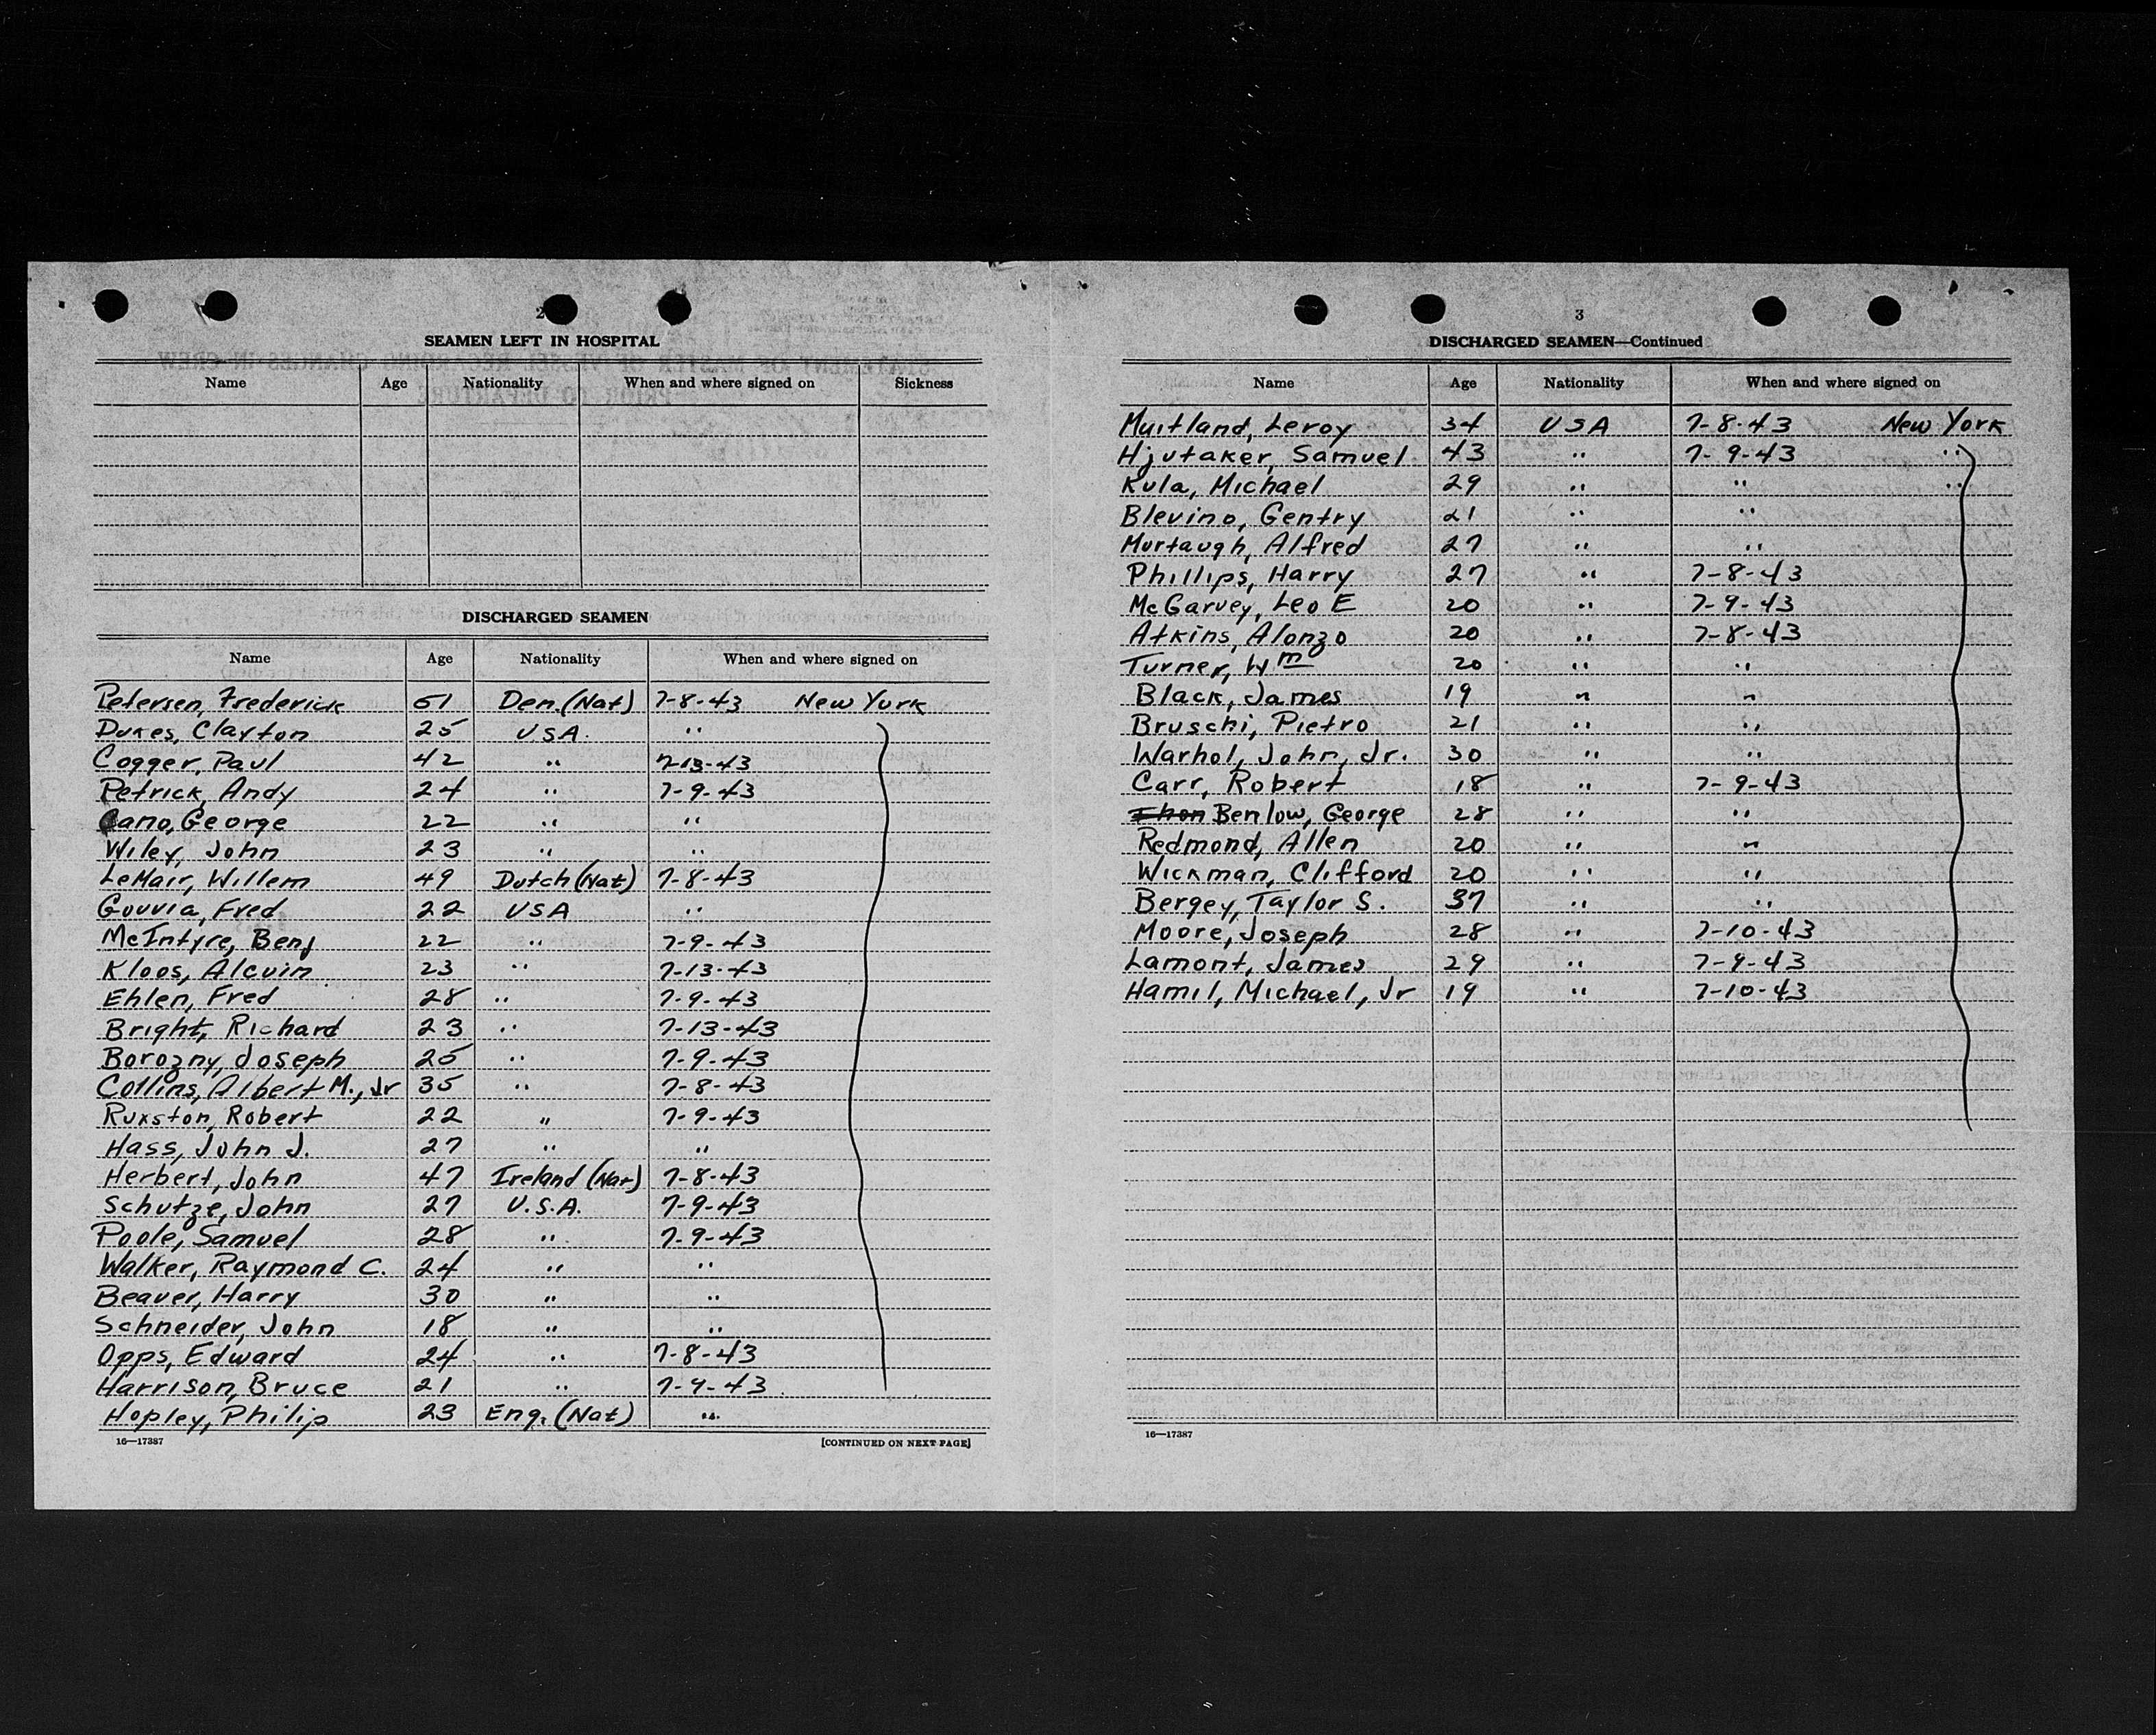 2
SEAMEN LEFT IN HOSPITAL
Name Age Nationality When and where signed on Sickness
DISCHARGED SEAMEN
Name Age Nationality When and where signed on
Petersen, Frederick 51 Den. (Nat) 7-8-43 New York
Dukes, Clayton 25 USA. "
Cogger, Paul 42 " 7-13-43
Petrick, Andy 24 " 7-9-43
Cano, George 22 " "
Wiley, John 23 " "
LeMair, Willem 49 Dutch (Nat) 7-8-43
Gouvia, Fred 22 USA "
McIntyre, Benj 22 " 7-9-43
Kloos, Alcuin 23 " 7-13-43
Ehlen, Fred 28 " 7-9-43
Bright, Richard 23 " 7-13-43
Borozny, Joseph 25 " 7-9-43
Collins, Albert M., Jr 35 " 7-8-43
Ruxston, Robert 22 " 7-9-43
Hass, John J. 27 " "
Herbert, John 47 Ireland (Nat) 7-8-43
Schutze, John 27 U.S.A. 7-9-43
Poole, Samuel 28 " 7-9-43
Walker, Raymond C. 24 " "
Beaver, Harry 30 " "
Schneider, John 18 " "
Opps, Edward 24 " 7-8-43
Harrison, Bruce 21 " 7-9-43
Hopley, Philip 23 Eng. (Nat) "
16—17387 [CONTINUED ON NEXT PAGE]
3
DISCHARGED SEAMEN—Continued
Name Age Nationality When and where signed on
Muitland, Leroy 34 USA 7-8-43 New York
Hjutaker, Samuel 43 " 7-9-43 "
Kula, Michael 29 " " "
Blevino, Gentry 21 " "
Murtaugh, Alfred 27 " "
Phillips, Harry 27 " 7-8-43
McGarvey, Leo E 20 " 7-9-43
Atkins, Alonzo 20 " 7-8-43
Turner, Wm 20 " "
Black, James 19 " "
Bruschi, Pietro 21 " "
Warhol, John, Jr. 30 " "
Carr, Robert 18 " 7-9-43
Benlow, George 28 " "
Redmond, Allen 20 " "
Wickman, Clifford 20 " "
Bergey, Taylor S. 37 " "
Moore, Joseph 28 " 7-10-43
Lamont, James 29 " 7-9-43
Hamil, Michael, Jr 19 " 7-10-43
16—17387